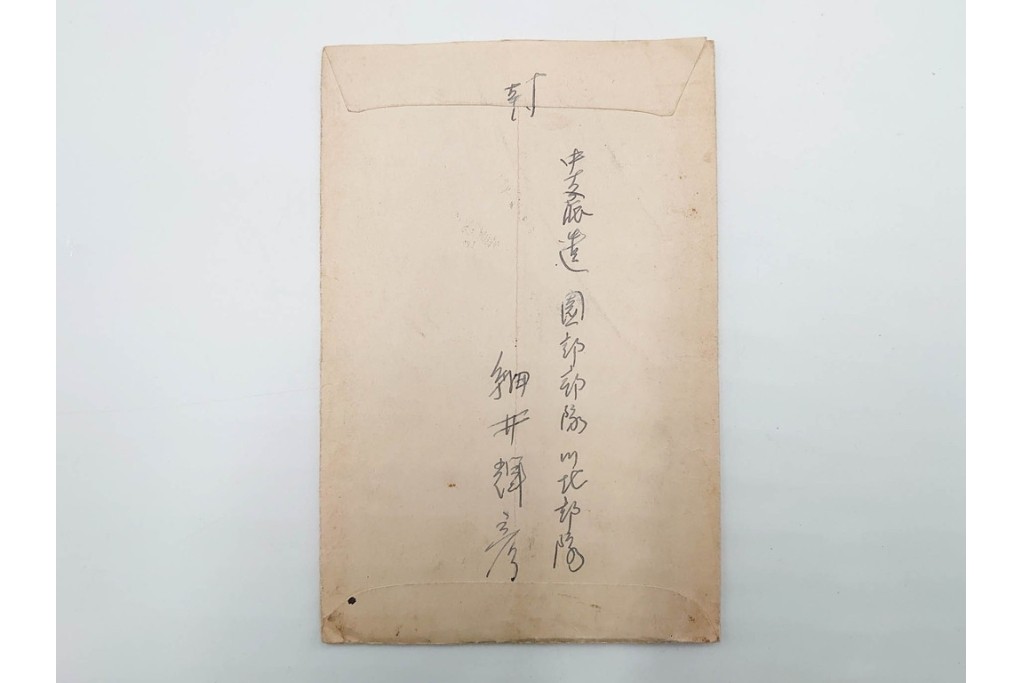 封
中支派遣 園部部隊 川北部隊
細井輝彦